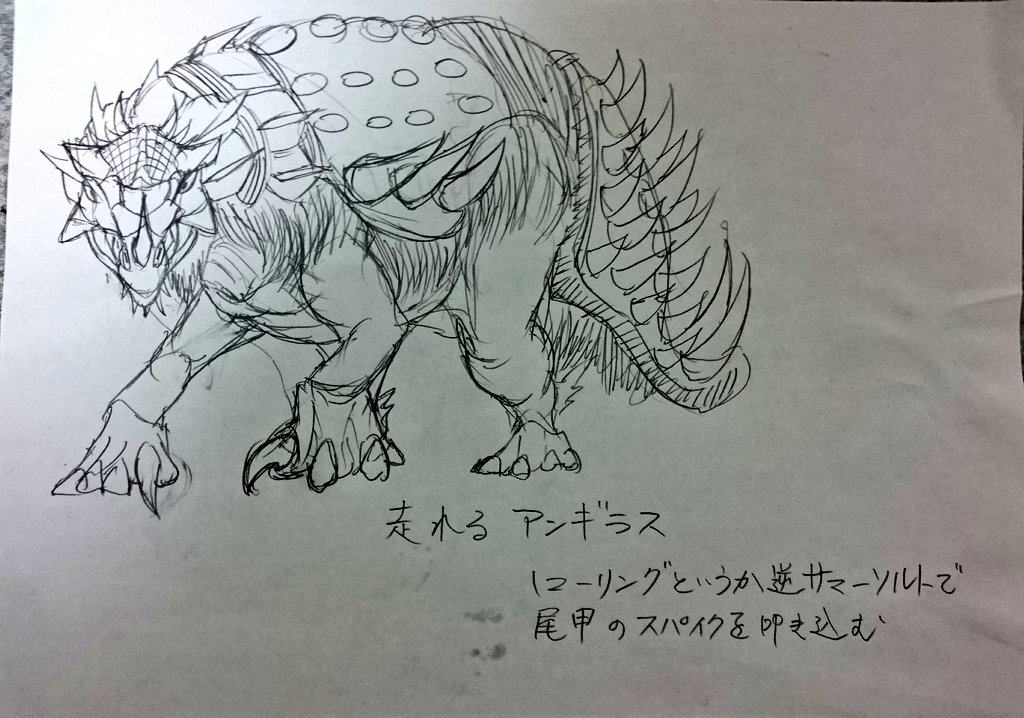 走れる アンギラス
ローリングというか逆サマーソルトで
尾甲のスパイクを叩き込む